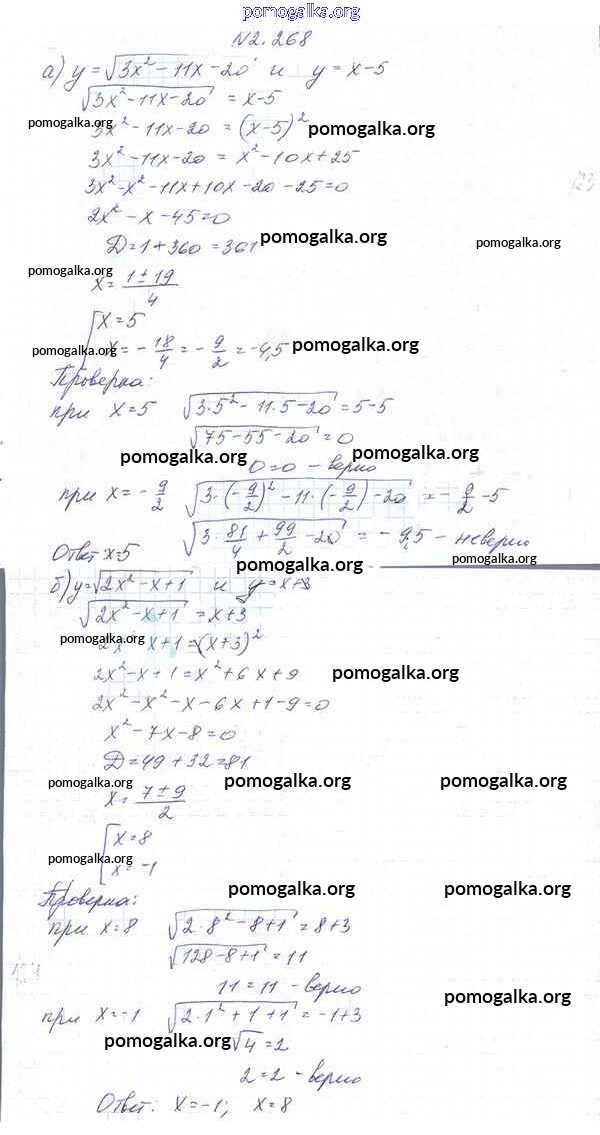 pomogalka.org
N2.268
а) y=√3x²-11x-20 и y=x-5
√3x²-11x-20 = x-5
pomogalka.org
3x²-11x-20 = (x-5)² pomogalka.org
3x²-11x-20 = x²-10x+25
3x²-x²-11x+10x-20-25=0
2x²-x-45=0
Д=1+360=361 pomogalka.org pomogalka.org
pomogalka.org
x= 1±19/4
[x=5
pomogalka.org x=-18/4=-9/2=-4,5 pomogalka.org
Проверка:
при x=5 √3·5²-11·5-20=5-5
√75-55-20=0
pomogalka.org 0=0-верно pomogalka.org
при x=-9/2 √3·(-9/2)²-11·(-9/2)-20=-9/2-5
√3·81/4+99/2-20=-9,5-неверно
Ответ x=5 pomogalka.org
б) y=√2x²-x+1 и y=x+3
√2x²-x+1=x+3
pomogalka.org 2x²-x+1=(x+3)²
2x²-x+1=x²+6x+9 pomogalka.org
2x²-x²-x-6x+1-9=0
x²-7x-8=0
Д=49+32=81
pomogalka.org pomogalka.org pomogalka.org
x=7±9/2
[x=8
pomogalka.org x=-1
Проверка: pomogalka.org pomogalka.org
при x=8 √2·8²-8+1=8+3
√128-8+1=11
11=11-верно pomogalka.org
при x=-1 √2·1²+1+1=-1+3
pomogalka.org √4=2
2=2-верно
Ответ: x=-1; x=8